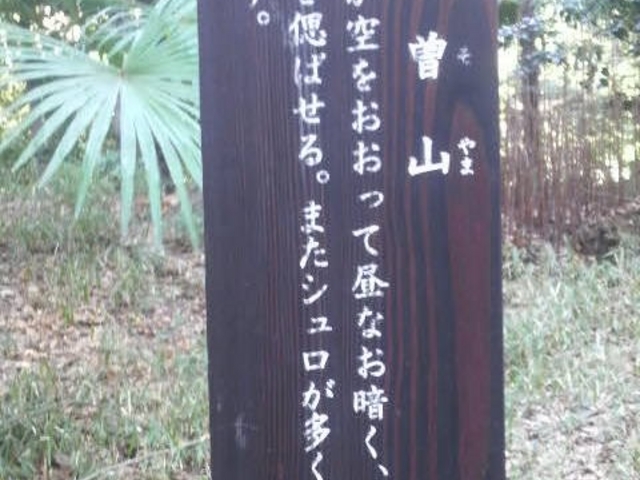 曽山
そやま
空をおおって昼なお暗く、
偲ばせる。またシュロが多く
。